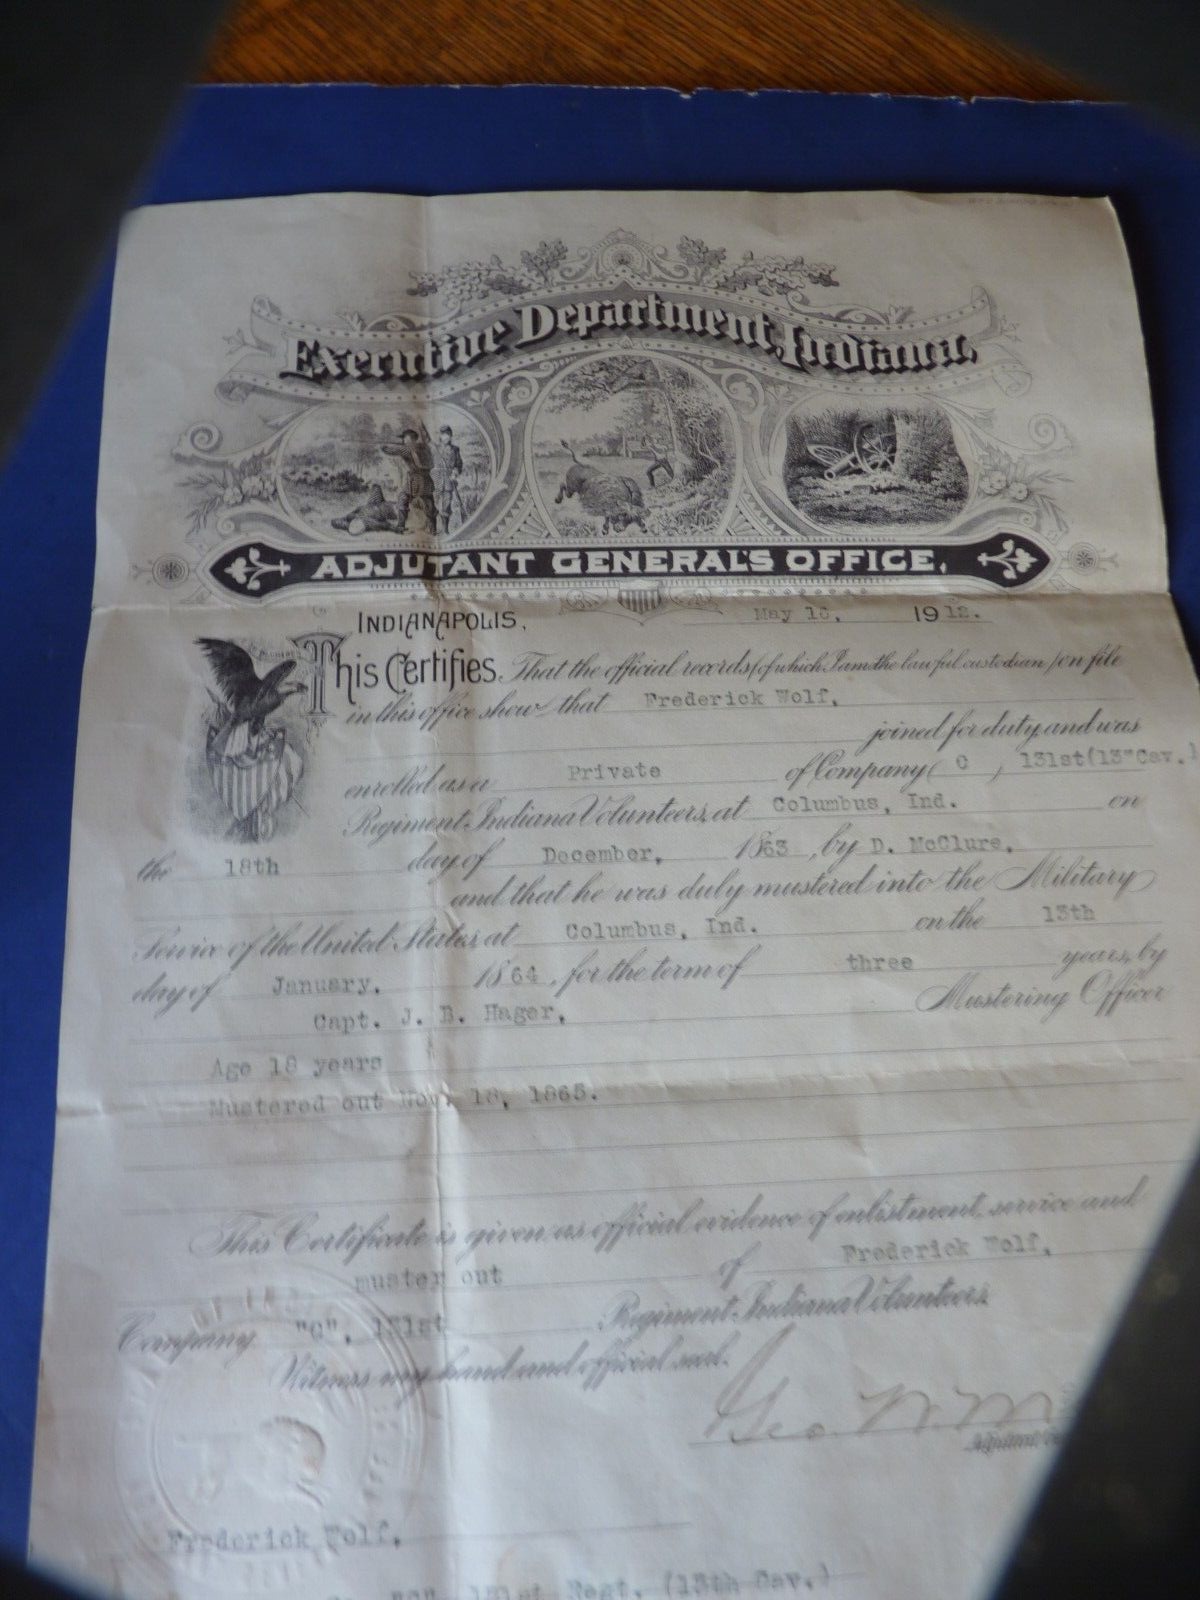 Executive Department, Indiana,
ADJUTANT GENERAL'S OFFICE,
INDIANAPOLIS, May 1 , 1912.
This Certifies, That the official records (of which I am the lawful custodian) on file
in this office show that Frederick Wolf,
joined for duty and was
enrolled as a Private of Company ( C , 131st(13"Cav.)
Regiment Indiana Volunteers, at Columbus, Ind. on
the 18th day of December, 1863, by D. McClure,
and that he was duly mustered into the Military
Service of the United States, at Columbus, Ind. on the 13th
day of January, 1864, for the term of three years, by
Capt. J. B. Hager, Mustering Officer
Age 18 years
Mustered out Nov. 18, 1865.
This Certificate is given as official evidence of enlistment, service and
muster out of Frederick Wolf,
Company "C", 131st Regiment Indiana Volunteers
Witness my hand and official seal.
Geo. W. M
Adjutant
Frederick Wolf,
Co. "C" 131st Regt. (13th Cav.)